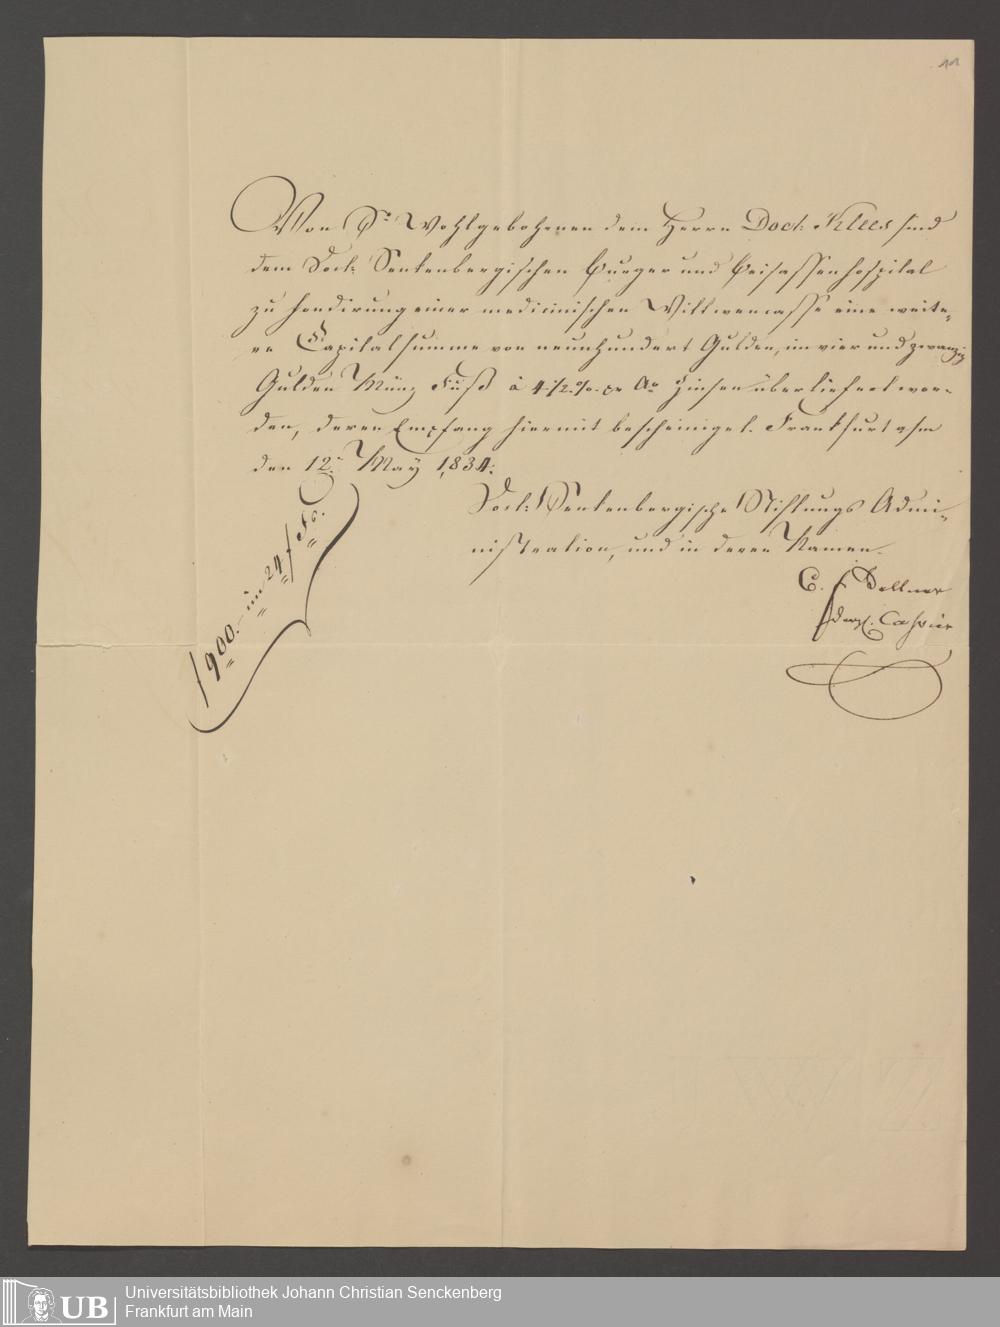 11
Von Sr. Wohlgebohrenen dem Herrn Doct: Klees sind
dem Doct: Senkenbergischen Bürger und Beisassenhospital
zu Fondirung einer medicinischen Wittwencasse eine weite-
re Capitalsumme von neunhundert Gulden, im vier und zwanzig
Gulden Münz Fuß à 4 1/2 % pr Ao Zinsen überliefert wor-
den, deren Empfang hiermit bescheiniget. Frankfurt a/m
den 12. May 1834.
Doct: Senkenbergische Stiftungs Admi-
nistration, und in deren Namen
C. F. Dellner
Cassier
f 900. im 24 f Fs.
UB
Universitätsbibliothek Johann Christian Senckenberg
Frankfurt am Main